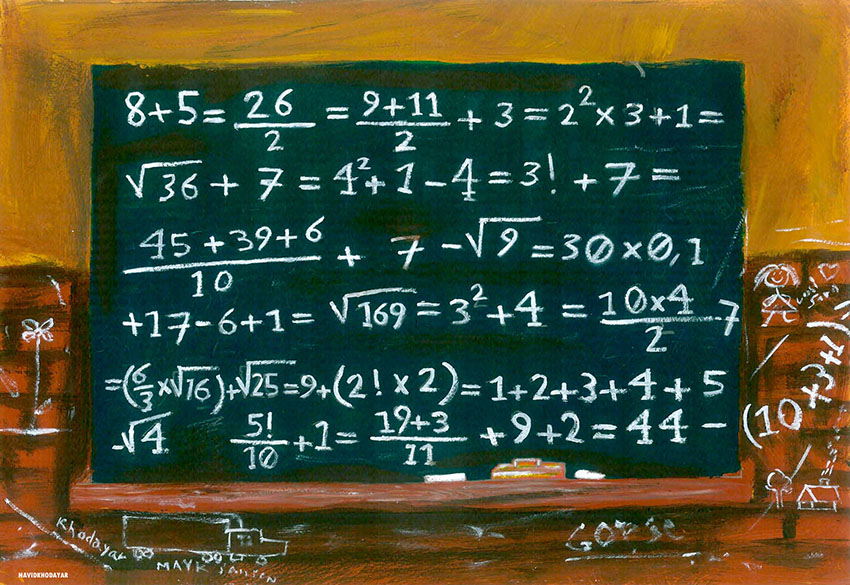 8+5=26/2=(9+11)/2+3=2²×3+1=
√36+7=4²+1-4=3!+7=
(45+39+6)/10+7-√9=30×0,1
+17-6+1=√169=3²+4=(10×4)/2-7
=(6/3×√16)+√25=9+(2!×2)=1+2+3+4+5
-√4 5!/10+1=(19+3)/11+9+2=44-(10×3+1)
Khodayar
MAYK Jansen
NAVIDKHODAYAR